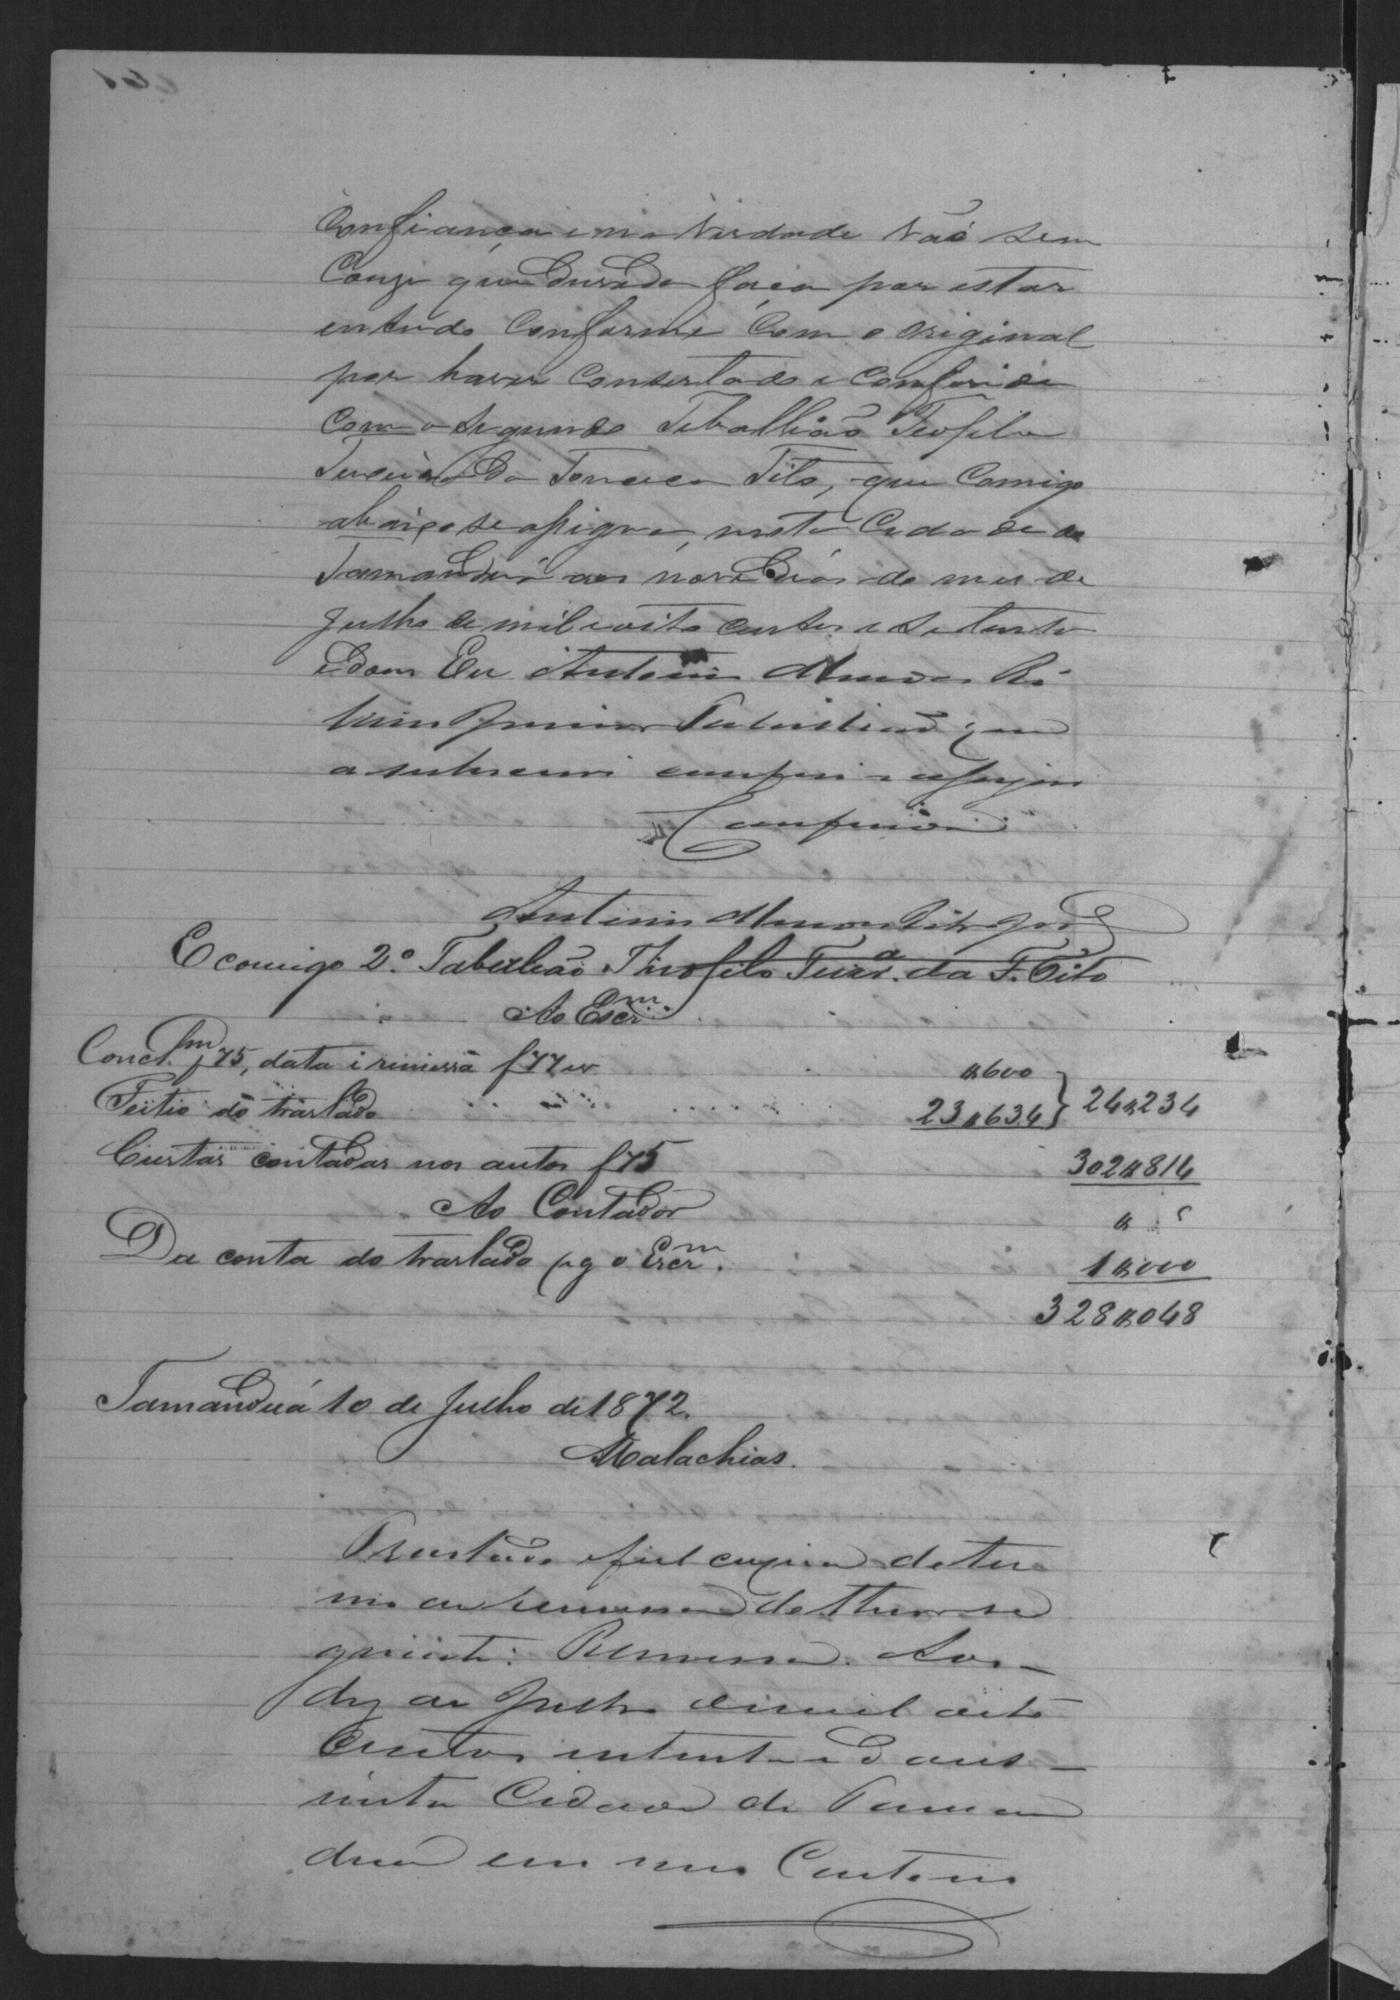 Confiança e na Verdade Não tem
Couza que duvida faça por estar
em tudo Conforme Com o original
por haver Consertado e Conferido
Com o Segundo Taballião Teofilo
Teixeira da Fonceca Tito, que Comigo
abaixo se asigna, nesta Cidade de
Tamanduá aos nove dias do mes de
Julho de mil e oito centos e Setenta
e dous Eu Antonio Alves
Junior Tabelião que
a subscrevi conferi e asigno
Conferido
Antonio
E comigo 2.º Tabelião Theofilo Teixr.ª da F. Tito
Ao Escr.m
Concl.m f 75, data e remessa f 77 v $600
Feitio do traslado 23$634 } 24$234
Custas contadas nos autos f 75 302$814
Ao Contador $
Da conta do traslado pg o Escr.m 1$000
328$048
Tamanduá 10 de Julho de 1872.
Malachias.
Traslado e fiel copia do ter
mo de remessa do theor se
guinte: Remessa. Aos
dez de Julho de mil oito
Centos e setenta e dous
nesta Cidade de Taman
duá em meu Cartorio